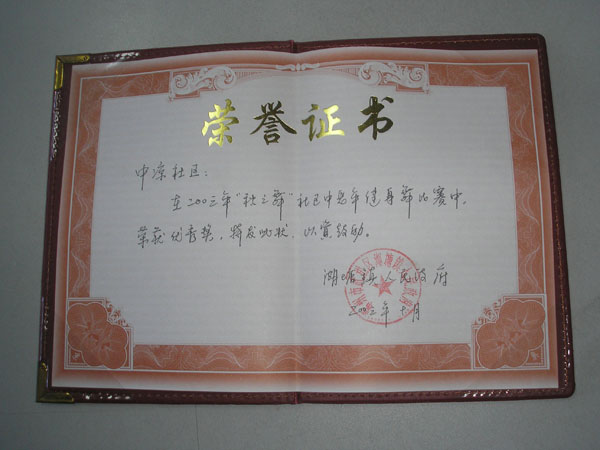 荣誉证书
中凉社区：
在二00三年“社之舞”社区中老年健身舞比赛中，
荣获创意奖，特发此状，以资鼓励。
湖塘镇人民政府
二00三年十月